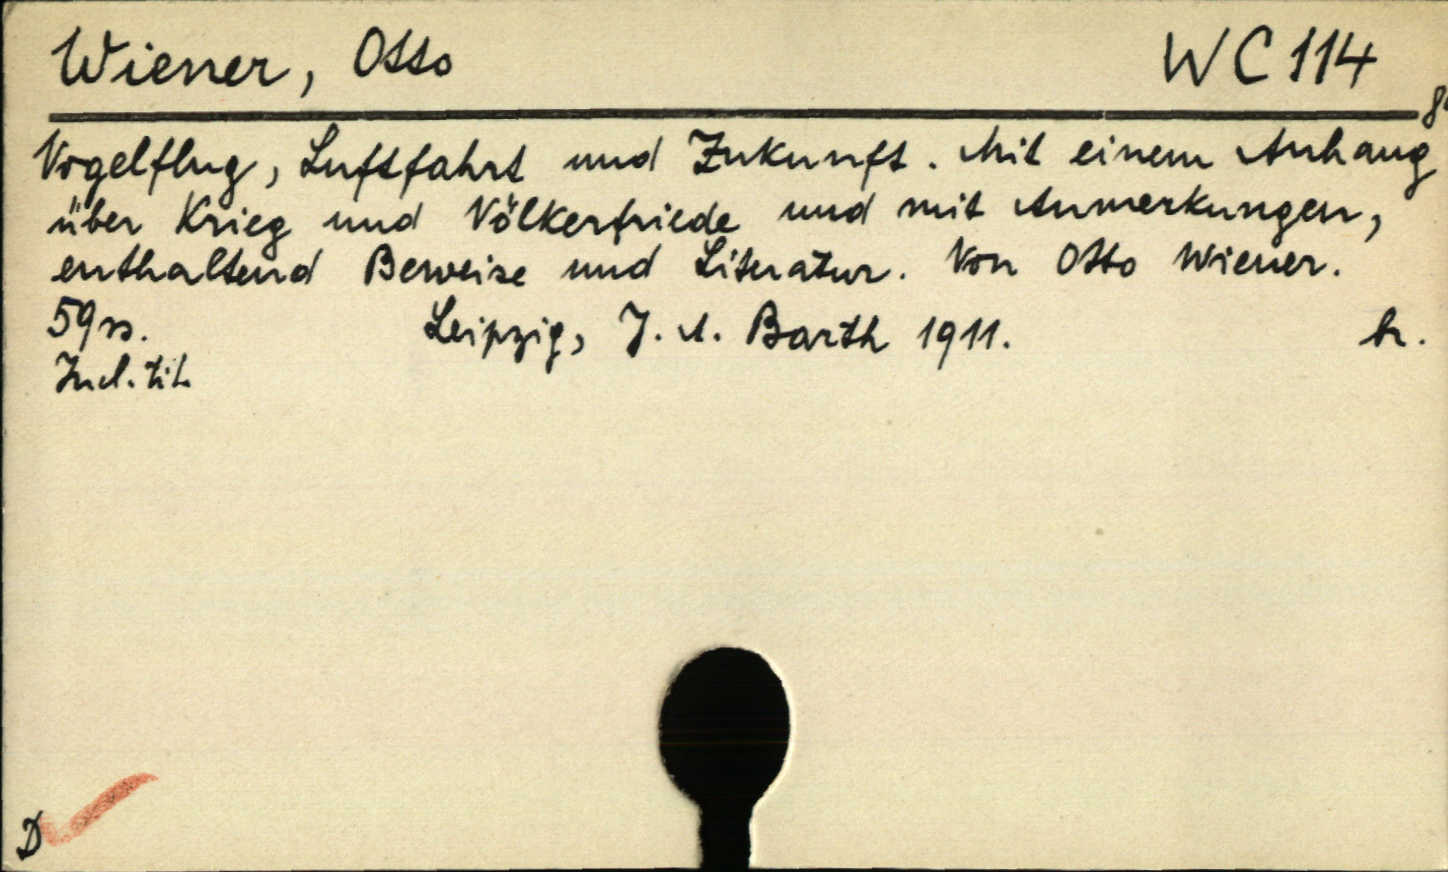 Wiener, Otto WC 114
8°
Vogelflug, Luftfahrt und Zukunft. Mit einem Anhang
über Krieg und Völkerfriede und mit Anmerkungen,
enthaltend Beweise und Literatur. Von Otto Wiener.
59 ss. Leipzig, J. A. Barth 1911. br.
Incl. tit.
D